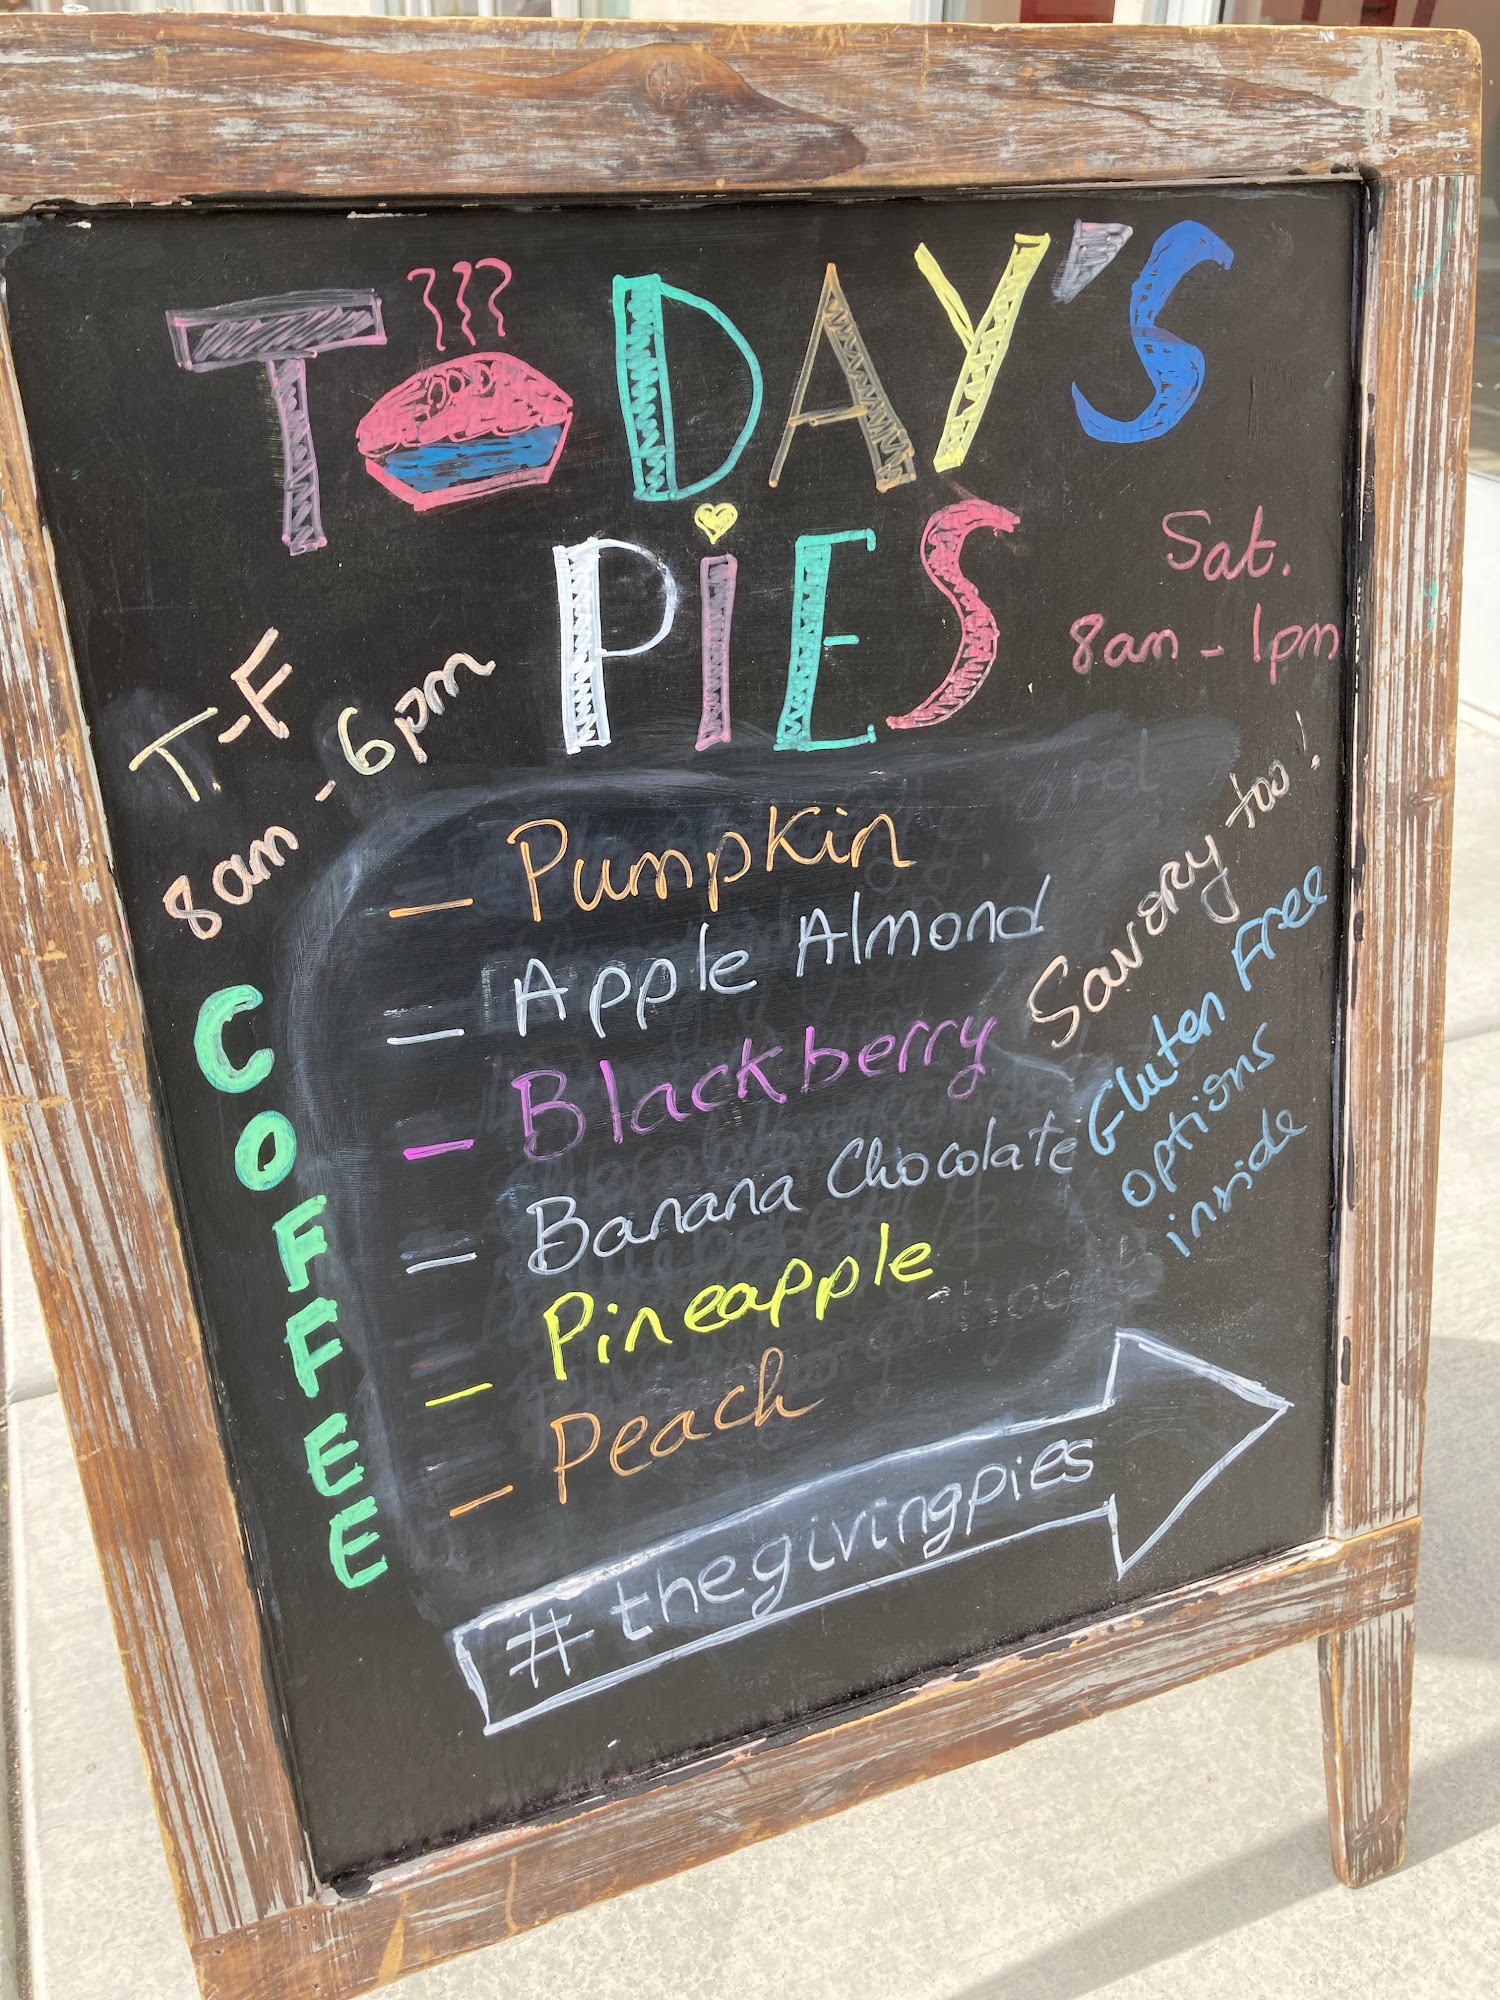 TODAY'S
PiES
Sat.
8am - 1pm
T.-F
8am - 6pm
- Pumpkin
- Apple Almond
- Blackberry
- Banana Chocolate
- Pineapple
- Peach
Savory too!
Gluten Free
options
inside
COFFEE
#thegivingpies